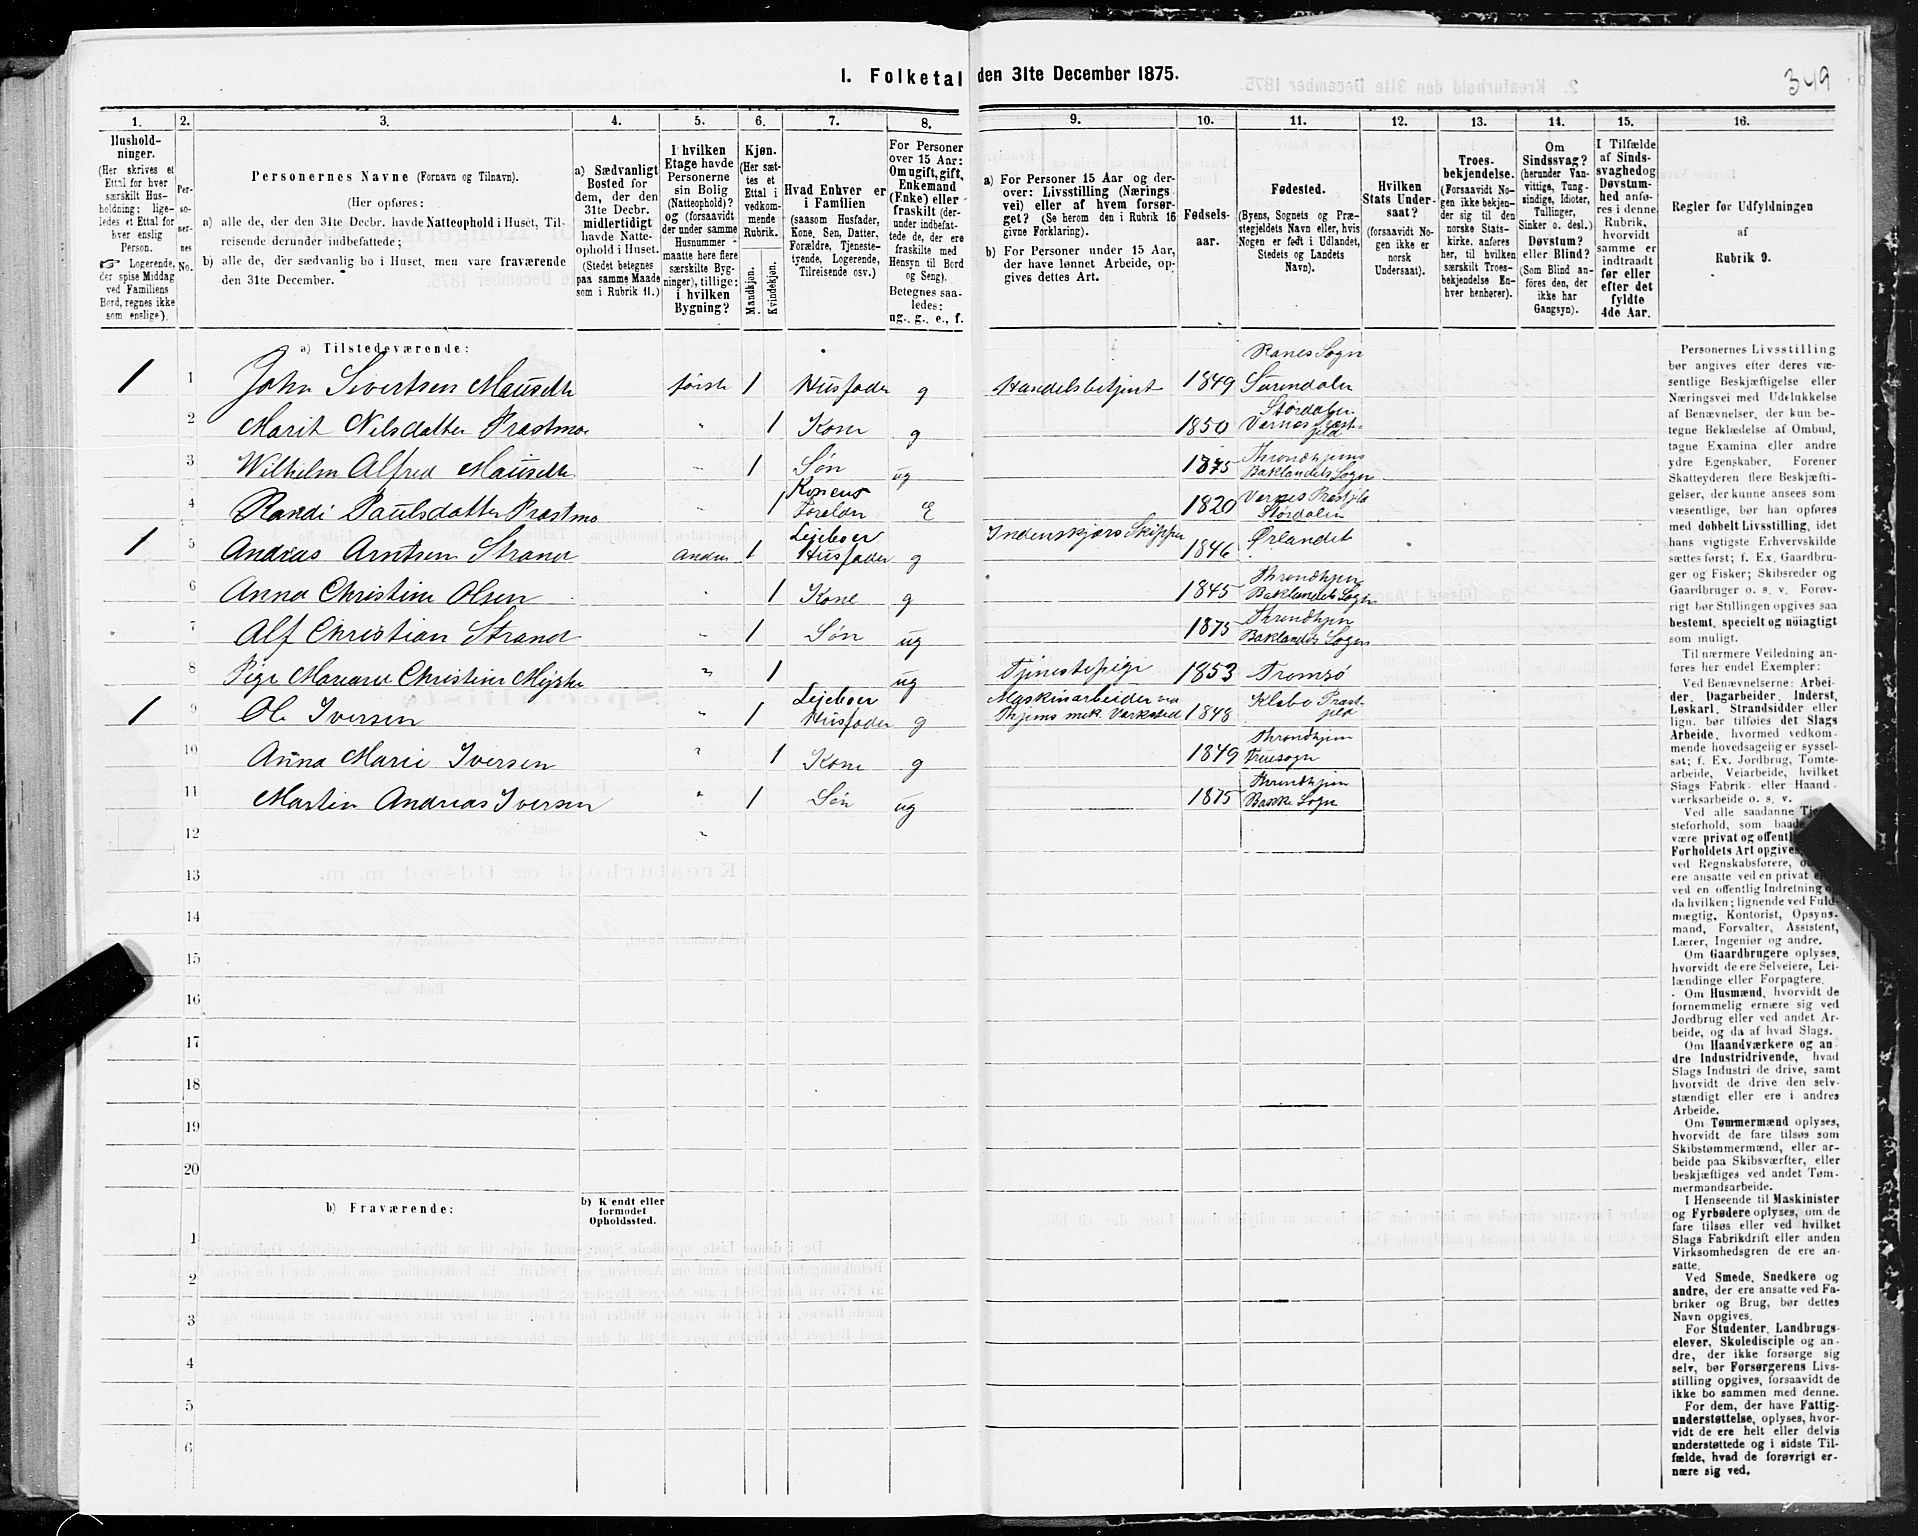 I. Folketal den 31te December 1875.
349
1. 2. 3. 4. 5. 6. 7. 8. 9. 10. 11. 12. 13. 14. 15. 16.
Hushold-
ninger.
(Her skrives et
Ettal for hver
særskilt Hus-
holdning; lige-
ledes et Ettal for
hver enslig
Person.
☞ Logerende,
der spise Middag
ved Familiens
Bord, regnes ikke
som enslige).
Per-
so-
ner-
nes
No.
Personernes Navne (Fornavn og Tilnavn).
(Her opføres:
a) alle de, der den 31te Decbr. havde Natteophold i Huset, Til-
reisende derunder indbefattede;
b) alle de, der sædvanlig bo i Huset, men vare fraværende
den 31te December.
a) Sædvanligt
Bosted for
dem, der den
31te Decbr.
midlertidigt
havde Natte-
ophold i Huset.
(Stedet betegnes
paa samme Maade
som i Rubrik 11.)
I hvilken
Etage havde
Personerne
sin Bolig
(Natteophold)?
og (forsaavidt
der under samme
Husnummer
maatte høre flere
særskilte Byg-
ninger), tillige:
i hvilken
Bygning?
Kjøn.
(Her sæt-
tes et
Ettal i
vedkom-
mende
Rubrik.
Mandkjøn.
Kvindekjøn.
Hvad Enhver er
i Familien
(saasom Husfader,
Kone, Søn, Datter,
Forældre, Tjeneste-
tyende, Logerende,
Tilreisende osv.)
For Personer
over 15 Aar:
Om ugift, gift,
Enkemand
(Enke) eller
fraskilt (der-
under indbefat-
tede de, der ere
fraskilte med
Hensyn til Bord
og Seng).
Betegnes saa-
ledes:
ug., g., e., f.
a) For Personer 15 Aar og der-
over: Livsstilling (Nærings
vei) eller af hvem forsør-
get? (Se herom den i Rubrik 16
givne Forklaring).
b) For Personer under 15 Aar,
der have lønnet Arbeide, op-
gives dettes Art.
Fødsels-
aar.
Fødested.
(Byens, Sognets og Præ-
stegjeldets Navn eller, hvis
Nogen er født i Udlandet,
Stedets og Landets
Navn).
Hvilken
Stats Under-
saat?
(forsaavidt No-
gen ikke er
norsk
Undersaat).
Troes-
bekjendelse.
(Forsaavidt No-
gen ikke bekjen-
der sig til den
norske Stats-
kirke, anføres
her, til hvilken
særskilt Troes-
bekjendelse En-
hver henhører).
Om
Sindssvag?
(herunder Van-
vittige, Tung-
sindige, Idioter,
Tullinger,
Sinker o. desl.)
Døvstum?
eller Blind?
(Som Blind an-
føres den, der
ikke har
Gangsyn).
I Tilfælde
af Sinds-
svaghed og
Døvstum-
hed anfø-
res i denne
Rubrik,
hvorvidt
samme er
indtraadt
før eller
efter det
fyldte
4de Aar.
Regler for Udfyldningen
af
Rubrik 9.
a) Tilstedeværende:
1 1 John Sivertsen Mausette første 1 Husfader g Handelsbetjent 1849 Ranes Sogn Surendalen
2 Marit Nilsdatter Præstmo " 1 Kone g 1850 Størdalen Værnes Præst-gjeld
3 Wilhelm Alfred Mausette " 1 Søn ug 1875 Throndhjem Baklandets Sogn
4 Randi Paulsdatter Præstmo " 1 Konens Forelder E 1820 Værnes Præstgjeld Størdalen
1 5 Andreas Arntsen Strand anden 1 Leieboer Husfader g Indenskjærs Skipper 1846 Ørlandet
6 Anna Christine Olsen " 1 Kone g 1845 Throndhjem Baklandets Sogn
7 Alf Christian Strand " 1 Søn ug 1875 Throndhjem Baklandets Sogn
8 Pige Christine " 1 ug Tjenestepige 1853 Tromsø
1 9 Ole Iversen " 1 Leieboer Husfader g Maskinarbeider ved Thjems mek. Værksted 1848 Klæbo Præst-gjeld
10 Anna Marie Iversen " 1 Kone g 1849 Throndhjem Fruesogn
11 Martin Andreas Iversen " 1 Søn ug 1875 Throndhjem Bakke Sogn
12 "
13
14
15
16
17
18
19
20
b) Fraværende:
b) Kjendt eller
formodet
Opholdssted.
1
2
3
4
5
6
Personernes Livsstilling
bør angives efter deres væ-
sentlige Beskjæftigelse eller
Næringsvei med Udelukkelse
af Benævnelser, der kun be-
tegne Beklædelse af Ombud,
tagne Examina eller andre
ydre Egenskaber. Forener
Skatteyderen flere Beskjæfti-
gelser, der kunne ansees som
væsentlige, bør han opføres
med dobbelt Livsstilling, idet
hans vigtigste Erhvervskilde
sættes først; f. Ex. Gaardbru-
ger og Fisker; Skibsreder og
Gaardbruger o. s. v. Forøv-
rigt bør Stillingen opgives saa
bestemt, specielt og nøiagtigt
som muligt.
Til nærmere Veiledning an-
føres her endel Exempler:
Ved Benævnelserne: Arbei-
der, Dagarbeider, Inderst,
Løskarl, Strandsidder eller
lign. bør tilføies det Slags
Arbeide, hvormed vedkom-
mende hovedsagelig er syssel-
sat; f. Ex. Jordbrug, Tomte-
arbeide, Veiarbeide, hvilket
Slags Fabrik- eller Haand-
værksarbeide o. s. v.
Ved alle saadanne
steforhold, som
være privat og
Forholdets Art opgives,
ved Regnskabsførere,
ere ansatte ved en privat
ved en offentlig Indretning
da hvilken; lignende ved Fuld-
mægtig, Kontorist, Opsyns-
mand, Forvalter, Assistent,
Lærer, Ingeniør og andre.
Om Gaardbrugere oplyses,
hvorvidt de ere Selveiere, Lei-
lændinge eller Forpagtere.
Om Husmænd, hvorvidt de
fornemmelig ernære sig ved
Jordbrug eller ved andet Ar-
beide, og da af hvad Slags.
Om Haandværkere og an-
dre Industridrivende, hvad
Slags Industri de drive, samt
hvorvidt de drive den selv-
stændigt eller ere i andres
Arbeide.
Om Tømmermænd oplyses,
hvorvidt de fare tilsøs som
Skibstømmermænd, eller ar-
beide paa Skibsværfter, eller
beskjæftiges ved andet Tøm-
mermandsarbeide.
I Henseende til Maskinister
og Fyrbødere oplyses, om de
fare tilsøs eller ved hvilket
Slags Fabrikdrift eller anden
Virksomhedsgren de ere an-
satte.
Ved Smede, Snedkere og
andre, der ere ansatte ved Fa-
briker og Brug, bør dettes
Navn opgives.
For Studenter, Landbrugs-
elever, Skoledisciple og an-
dre, der ikke forsørge sig
selv, bør Forsørgerens Livs-
stilling opgives, forsaavidt de
ikke bo sammen med denne.
For dem, der have Fattig-
understøttelse, oplyses, hvor-
vidt de ere helt eller delvis
understøttede og i sidste Til-
fælde, hvad de forøvrigt er-
nære sig ved.